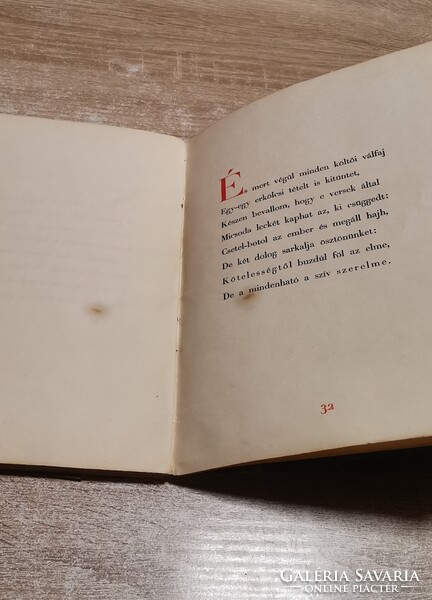 É, mert végül minden költői válfaj
Egy-egy erkölcsi tételt is kitüntet,
Készen bevallom, hogy e versek által
Micsoda leckét kaphat az, ki csügged:
Csetel-botol az ember és megáll hajh,
De két dolog sarkalja ösztönünket:
Kötelességtől buzdul föl az elme,
De a mindenható a szív szerelme.
32
GALERIA SAVARIA
ONLINE PIACTÉR